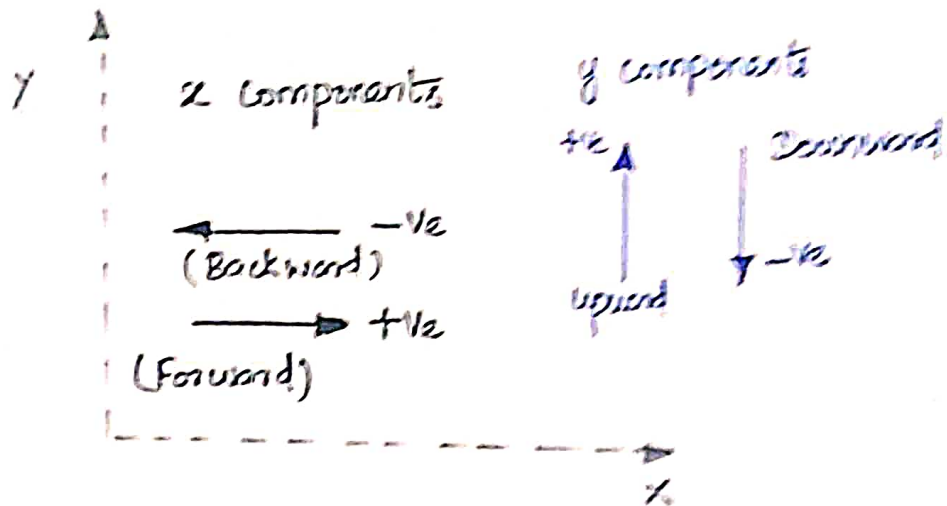 Y
x components
y components
+ve
Downward
-ve
(Backward)
-ve
upward
+ve
(Forward)
X